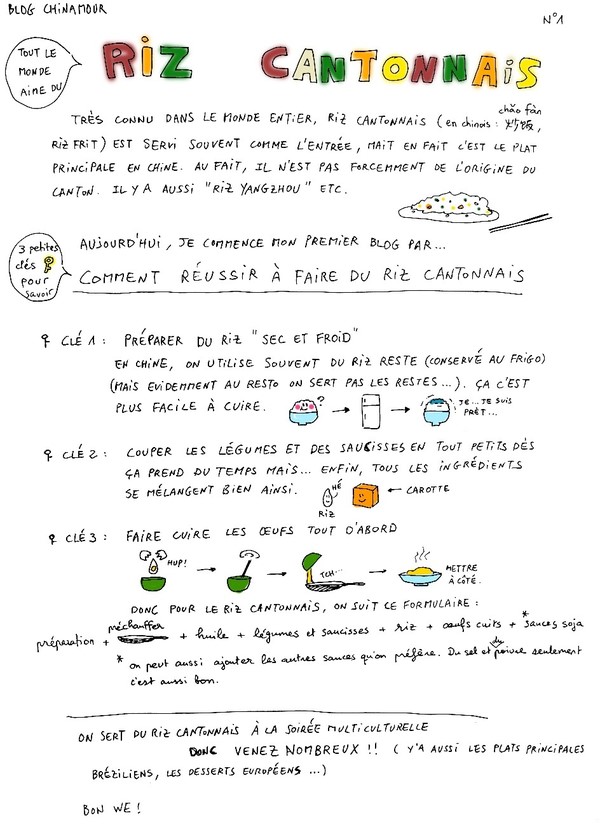 BLOG CHINAMOUR
N°1
TOUT LE
MONDE
AIME DU
RIZ CANTONNAIS
chǎo fàn
TRÈS CONNU DANS LE MONDE ENTIER, RIZ CANTONNAIS (en chinois : 炒饭,
RIZ FRIT) EST SERVI SOUVENT COMME L'ENTRÉE, MAIT EN FAIT C'EST LE PLAT
PRINCIPALE EN CHINE. AU FAIT, IL N'EST PAS FORCEMMENT DE L'ORIGINE DU
CANTON. IL Y A AUSSI "RIZ YANGZHOU" ETC.
3 petites
clés
pour
savoir
AUJOURD'HUI, JE COMMENCE MON PREMIER BLOG PAR...
COMMENT RÉUSSIR À FAIRE DU RIZ CANTONNAIS
CLÉ 1 : PRÉPARER DU RIZ "SEC ET FROID"
EN CHINE, ON UTILISE SOUVENT DU RIZ RESTE (CONSERVÉ AU FRIGO)
(MAIS EVIDEMMENT AU RESTO ON SERT PAS LES RESTES...). ÇA C'EST
PLUS FACILE À CUIRE.
?
JE... JE SUIS
PRÊT...
CLÉ 2 : COUPER LES LÉGUMES ET DES SAUCISSES EN TOUT PETITS DÉS
ÇA PREND DU TEMPS MAIS... ENFIN, TOUS LES INGRÉDIENTS
SE MÉLANGENT BIEN AINSI.
HÉ
RIZ
CAROTTE
CLÉ 3 : FAIRE CUIRE LES ŒUFS TOUT D'ABORD
HUP!
TCH...
METTRE
À CÔTÉ.
DONC POUR LE RIZ CANTONNAIS, ON SUIT CE FORMULAIRE :
préchauffer
préparation + + huile + légumes et saucisses + riz + œufs cuits + * sauces soja
* on peut aussi ajouter les autres sauces qu'on préfère. Du sel et du poivre seulement
c'est aussi bon.
ON SERT DU RIZ CANTONNAIS À LA SOIRÉE MULTICULTURELLE
DONC VENEZ NOMBREUX !! ( Y'A AUSSI LES PLATS PRINCIPALES
BRÉZILIENS, LES DESSERTS EUROPÉENS ...)
BON WE !